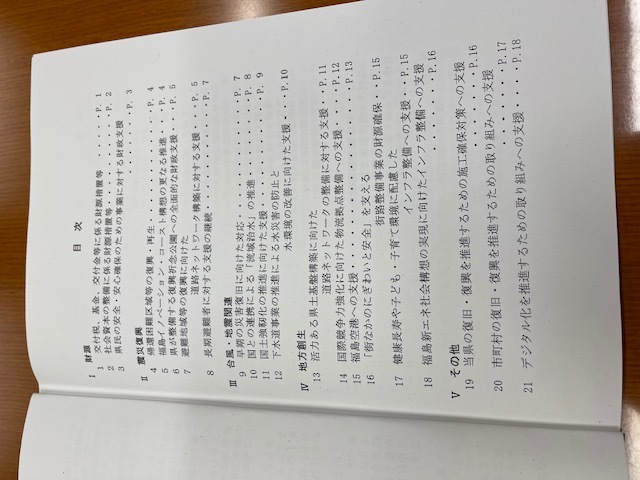 目　次
Ⅰ　財源
1　交付税、基金、交付金等に係る財源措置等・・・・・・・・P. 1
2　社会資本の整備に係る財源措置等・・・・・・・・P. 2
3　県民の安全・安心確保のための事業に対する財政支援・・・P. 3
Ⅱ　震災復興
4　帰還困難区域等の復興・再生・・・・・・・・P. 4
5　福島イノベーション・コースト構想の更なる推進・・・・P. 4
6　県が整備する復興祈念公園への全面的な財政支援・・・・P. 5
7　避難地域等の復興に向けた
道路ネットワーク構築に対する支援・・・P. 5
8　長期避難者に対する支援の継続・・・・・・・・P. 7
Ⅲ　台風・地震関連
9　早期の災害復旧に向けた対応・・・・・・・・P. 7
10　国との連携による「流域治水」の推進・・・・・・P. 8
11　国土強靭化の推進に向けた支援・・・・・・・・P. 9
12　下水道事業の推進による水災害の防止と
水環境の改善に向けた支援・・・P.10
Ⅳ　地方創生
13　活力ある県土基盤構築に向けた
道路ネットワークの整備に対する支援・・・P.11
14　国際競争力強化に向けた物流拠点整備への支援・・・・P.12
15　福島空港への支援・・・・・・・・P.13
16　「街なかのにぎわいと安全」を支える
街路整備事業の財源確保・・・P.15
17　健康長寿や子ども・子育て環境に配慮した
インフラ整備への支援・・・P.15
18　福島新エネ社会構想の実現に向けたインフラ整備への支援
・・・・・・・・P.16
Ⅴ　その他
19　当県の復旧・復興を推進するための施工確保対策への支援
・・・・・・・・P.16
20　市町村の復旧・復興を推進するための取り組みへの支援
・・・・・・・・P.17
21　デジタル化を推進するための取り組みへの支援・・・・・P.18